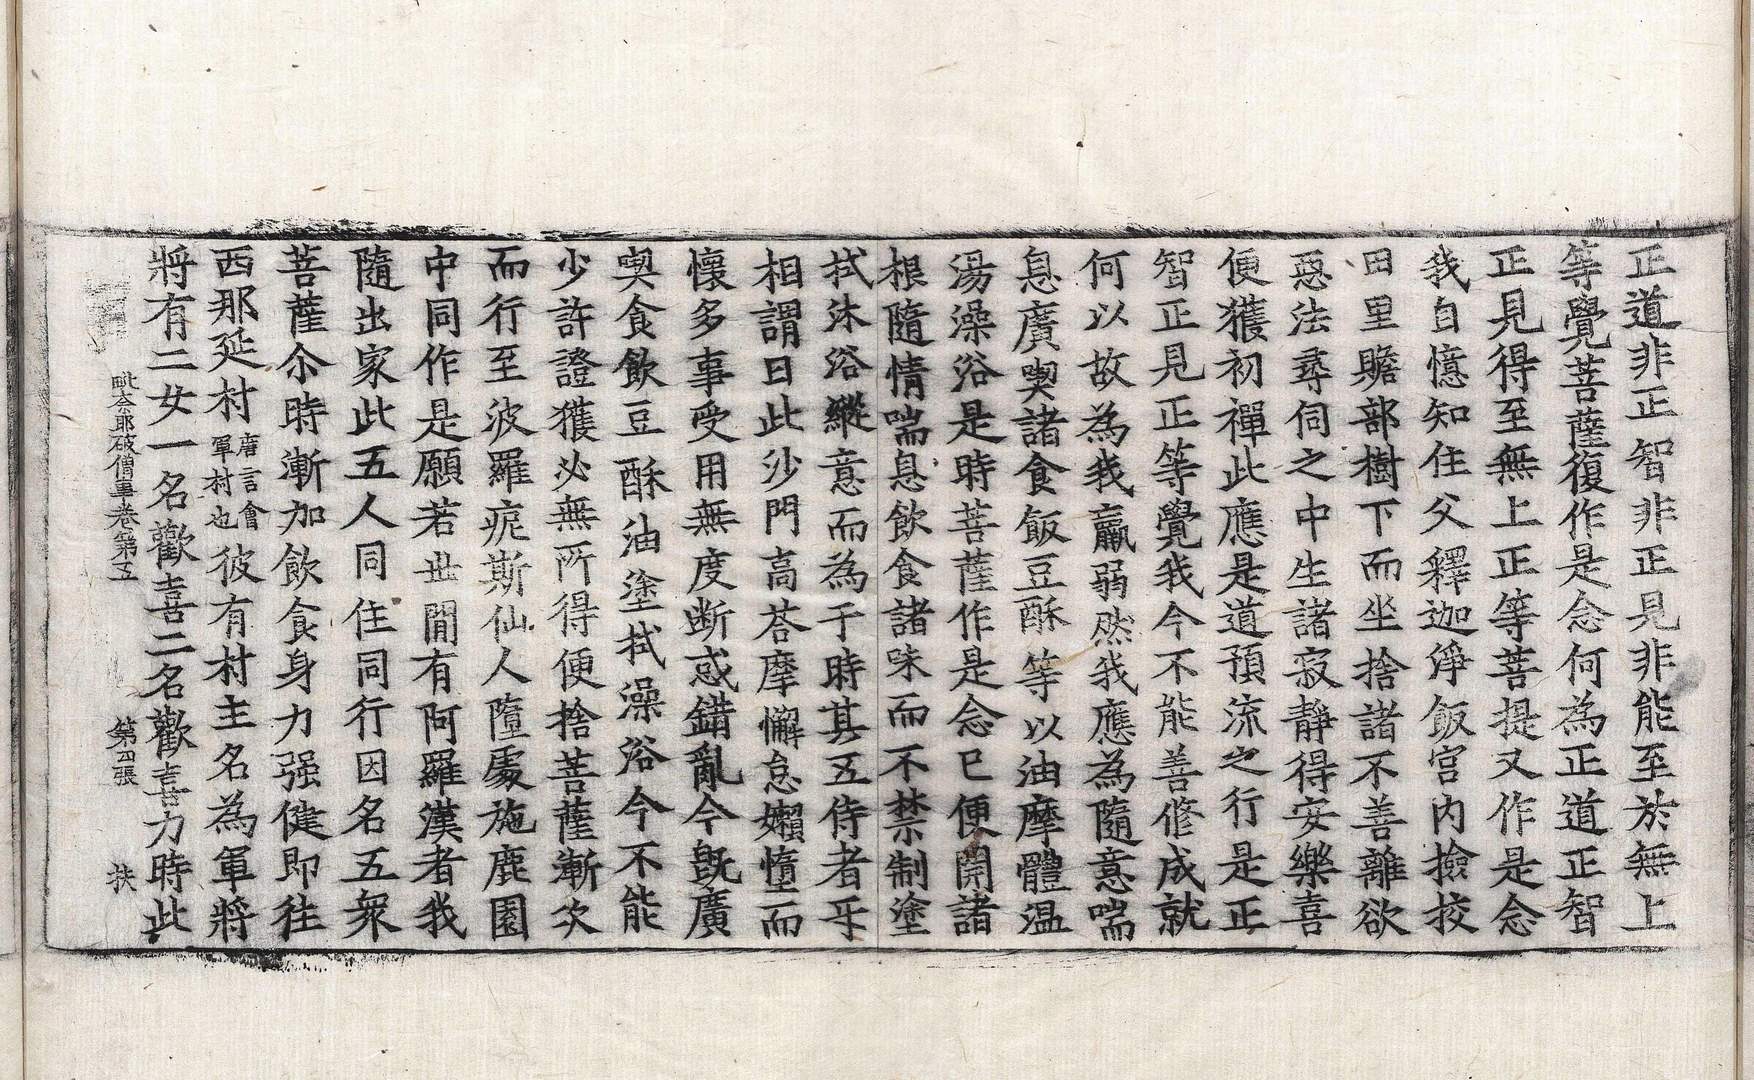 正道非正智非正見非能至於無上
等覺菩薩復作是念何為正道正智
正見得至無上正等菩提又作是念
我自憶知住父釋迦淨飯宮內撿挍
田里贍部樹下而坐捨諸不善離欲
惡法尋伺之中生諸寂靜得安樂喜
便獲初禪此應是道預流之行是正
智正見正等覺我今不能善修成就
何以故為我羸弱然我應為隨意喘
息廣喫諸食飯豆酥等以油摩體温
湯澡浴是時菩薩作是念已便開諸
根隨情喘息飲食諸味而不禁制塗
拭沐浴縱意而為于時其五侍者㸦
相謂曰此沙門喬荅摩懈怠嬾墮而
懷多事受用無度断惑錯亂今旣廣
喫食飲豆酥油塗拭澡浴今不能
少許證獲必無所得便捨菩薩漸次
而行至波羅痆斯仙人墮處施鹿園
中同作是願若世間有阿羅漢者我
隨出家此五人同住同行因名五衆
菩薩尒時漸加飲食身力强健即往
西那延村唐言會軍村也彼有村主名為軍將
將有二女一名歡喜二名歡喜力時此
毗奈耶破僧事卷第五 第四張 扶